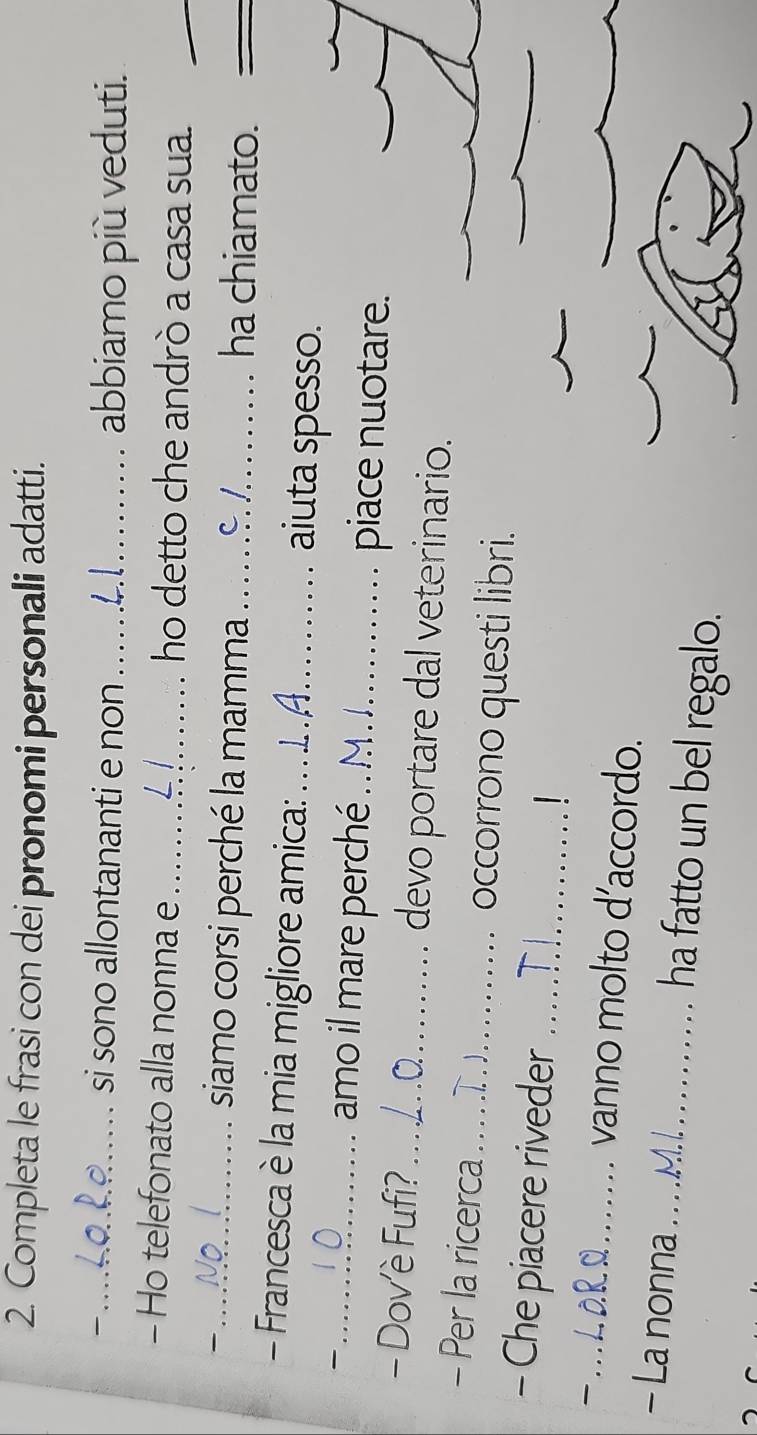 2. Completa le frasi con dei pronomi personali adatti.
- ....LORO...... si sono allontananti e non ......LI.......... abbiamo più veduti.
- Ho telefonato alla nonna e .........LI......... ho detto che andrò a casa sua.
- ....NOI.......... siamo corsi perché la mamma ......CI.......... ha chiamato.
- Francesca è la mia migliore amica: ....LA............ aiuta spesso.
- ......IO........... amo il mare perché ....MI.............. piace nuotare.
- Dov'è Fufi? ....LO............ devo portare dal veterinario.
- Per la ricerca .....TI............ occorrono questi libri.
- Che piacere riveder .....TI............!
- ...LORO........ vanno molto d'accordo.
- La nonna ....MI............ ha fatto un bel regalo.